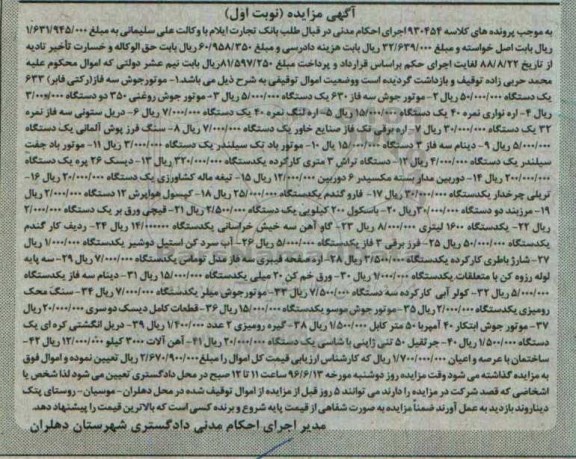 آگهی مزایده (نوبت اول)
به موجب پرونده های کلاسه ۹۳۰۴۵۴ اجرای احکام مدنی در قبال طلب بانک تجارت ایلام با وکالت علی سلیمانی به مبلغ ۱/۶۳۱/۹۴۵/۰۰۰
ریال بابت اصل خواسته و مبلغ ۳۲/۶۳۹/۰۰۰ ریال بابت هزینه دادرسی و مبلغ ۶۰/۹۵۸/۳۵۰ ریال بابت حق الوکاله و خسارت تأخیر تادیه
از تاریخ ۸۸/۸/۲۲ لغایت اجرای حکم براساس قرارداد و پرداخت مبلغ ۸۱/۵۹۷/۲۵۰ ریال بابت نیم عشر دولتی که اموال محکوم علیه
محمد حربی زاده توقیف و بازداشت گردیده است ووضعیت اموال توقیفی به شرح ذیل می باشد:۱- موتورجوش سه فاز(رکتی فایر) ۶۳۳
یک دستگاه ۵۰/۰۰۰/۰۰۰ ریال ۲- موتور جوش سه فاز ۶۳۰ یک دستگاه ۵/۰۰۰/۰۰۰ ریال ۳- موتور جوش روغنی ۳۵۰ دو دستگاه ۳/۰۰۰/۰۰۰
ریال ۴- اره نواری نمره ۴۰ یک دستگاه ۱۵/۰۰۰/۰۰۰ ریال ۵- اره لنگ نمره ۴۰ یک دستگاه ۷/۰۰۰/۰۰۰ ریال ۶- دریل ستونی سه فاز نمره
۳۲ یک دستگاه ۳۰/۰۰۰/۰۰۰ ریال ۷- اره برقی تک فاز صنایع خاور یک دستگاه ۷/۰۰۰/۰۰۰ ریال ۸- سنگ فرز پوش آلمانی یک دستگاه
۵/۰۰۰/۰۰۰ ریال ۹- دینام سه فاز ۳ دستگاه ۱۵/۰۰۰/۰۰۰ ریال ۱۰- موتور باد تک سیلندر یک دستگاه ۳/۰۰۰/۰۰۰ ریال ۱۱- موتور باد جفت
سیلندر یک دستگاه ۴/۰۰۰/۰۰۰ ریال ۱۲- دستگاه تراش ۳ متری کارکرده یکدستگاه ۳۲۰/۰۰۰/۰۰۰ ریال ۱۳- دیسک ۲۶ پره یک دستگاه
۲۰۰/۰۰۰/۰۰۰ ریال ۱۴- دوربین مدار بسته مکسپید ۶ دوربین ۱۲/۰۰۰/۰۰۰ ریال ۱۵- تیغه ماله کشاورزی یک دستگاه ۲۰/۰۰۰/۰۰۰ ریال ۱۶-
تریلی چرخدار یکدستگاه ۳۰/۰۰۰/۰۰۰ ریال ۱۷- فارو گندم یکدستگاه ۲۵/۰۰۰/۰۰۰ ریال ۱۸- کپسول هواپرش ۱۲ دستگاه ۲/۰۰۰/۰۰۰ ریال
۱۹- مرزبند دو دستگاه ۳۰/۰۰۰/۰۰۰ ریال ۲۰- باسکول ۲۰۰ کیلویی یک دستگاه ۲/۵۰۰/۰۰۰ ریال ۲۱- قیچی ورق بر یک دستگاه ۲/۰۰۰/۰۰۰
ریال ۲۲- یکدستگاه ۱۶۰۰ لیتری ۸/۰۰۰/۰۰۰ ریال ۲۳- گاو آهن سه خیش خراسانی یکدستگاه ۱۴/۰۰۰/۰۰۰ ریال ۲۴- ردیف کار گندم
یکدستگاه ۵۰/۰۰۰/۰۰۰ ریال ۲۵- فرز برقی ۳ فاز یکدستگاه ۵/۰۰۰/۰۰۰ ریال ۲۶- آب سرد کن استیل دوشیر یکدستگاه ۱/۰۰۰/۰۰۰ ریال
۲۷- شارژ باطری کارکرده یکدستگاه ۲/۵۰۰/۰۰۰ ریال ۲۸- اره صفحه فیبری سه فاز مدل توماس یکدستگاه ۷/۰۰۰/۰۰۰ ریال ۲۹- سه پایه
لوله رزوه کن با متعلقات یکدستگاه ۱/۰۰۰/۰۰۰ ریال ۳۰- ورق خم کن ۲۰ میلی یکدستگاه ۱۵/۰۰۰/۰۰۰ ریال ۳۱- دینام سه فاز یکدستگاه
۵/۰۰۰/۰۰۰ ریال ۳۲- کولر آبی کارکرده سه دستگاه ۷/۵۰۰/۰۰۰ ریال ۳۳- موتورجوش میلر یکدستگاه ۷/۰۰۰/۰۰۰ ریال ۳۴- سنگ محک
رومیزی یکدستگاه ۲/۰۰۰/۰۰۰ ریال ۳۵- موتور جوش موسو یکدستگاه ۱۵/۰۰۰/۰۰۰ ریال ۳۶- قطعات کامل دیسک دوسری ۲۰/۰۰۰/۰۰۰ ریال
۳۷- موتور جوش ابتکار ۴۰ آمپر با ۵۰ متر کابل ۱/۵۰۰/۰۰۰ ریال ۳۸- گیره رومیزی ۲ عدد ۱/۴۰۰/۰۰۰ ریال ۳۹- دریل انگشتی کره ای یک
دستگاه ۱/۵۰۰/۰۰۰ ریال ۴۰- جرثقیل ۵۰ تنی ژاپنی با شاسی یک دستگاه ۲۰/۰۰۰/۰۰۰ ریال ۴۱- آهن آلات ۳۰۰۰ کیلو ۱۲/۰۰۰/۰۰۰ ریال ۴۲-
ساختمان با عرصه و اعیان ۱/۷۰۰/۰۰۰/۰۰۰ ریال که کارشناس ارزیابی قیمت کل اموال را مبلغ ۲/۶۷۰/۹۰۰/۰۰۰ ریال تعیین نموده و اموال فوق
به مزایده گذاشته می شود وقت مزایده روز دوشنبه مورخه ۹۶/۶/۱۳ ساعت ۱۱ تا ۱۲ صبح در محل دادگستری تعیین می شود لذا شخص یا
اشخاصی که قصد شرکت در مزایده را دارند می توانند ۵ روز قبل از مزایده از اموال توقیف شده در محل دهلران-موسیان- روستای پتک
دیناروند بازدید به عمل آورند ضمناً مزایده به صورت شفاهی از قیمت پایه شروع و برنده کسی است که بالاترین قیمت را پیشنهاد دهد.
مدیر اجرای احکام مدنی دادگستری شهرستان دهلران